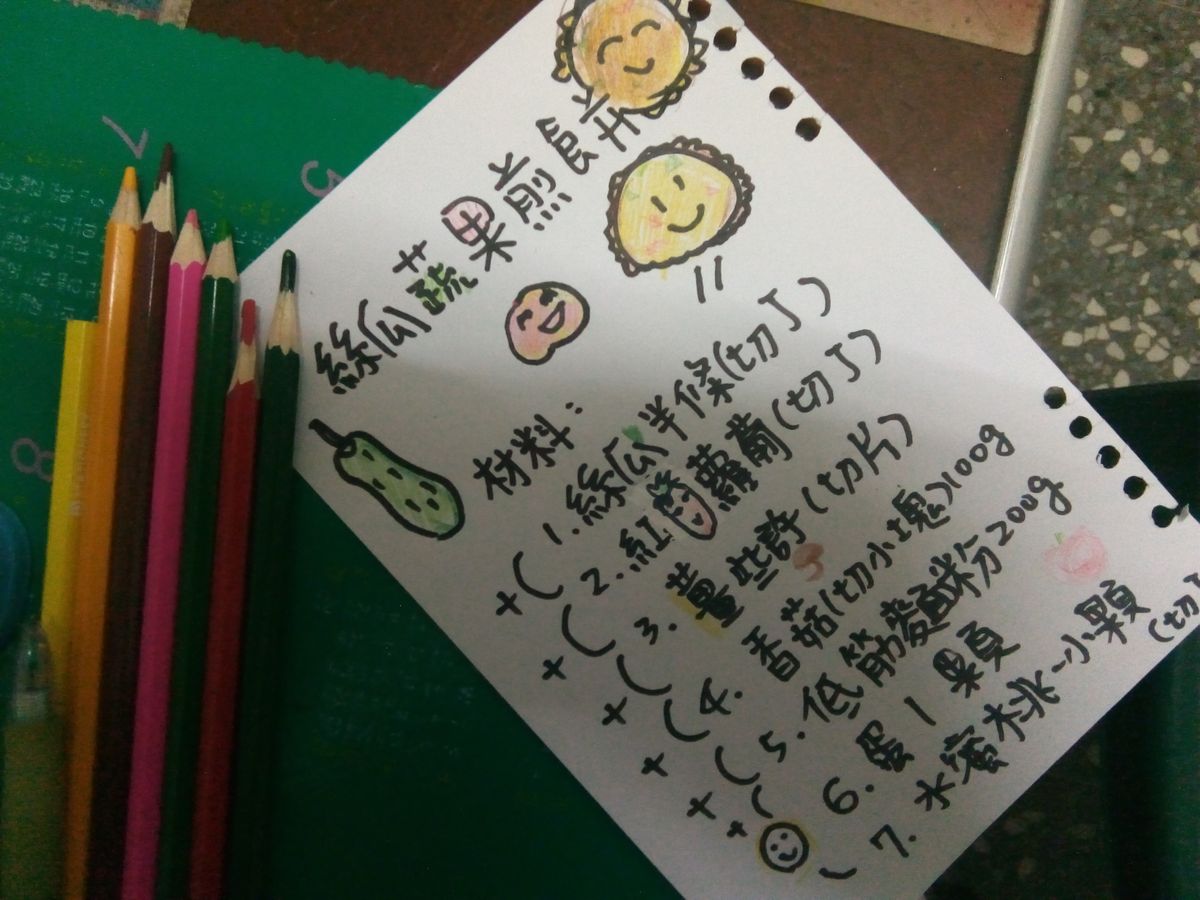 絲瓜蔬果煎食弁
材料:
1.絲瓜半條(切丁)
2.紅蘿蔔(切丁)
3.薑些許(切片)
4.香菇(切小塊)100g
5.低筋麵粉200g
6.蛋1顆
7.水蜜桃一小顆(切丁
7
5
8